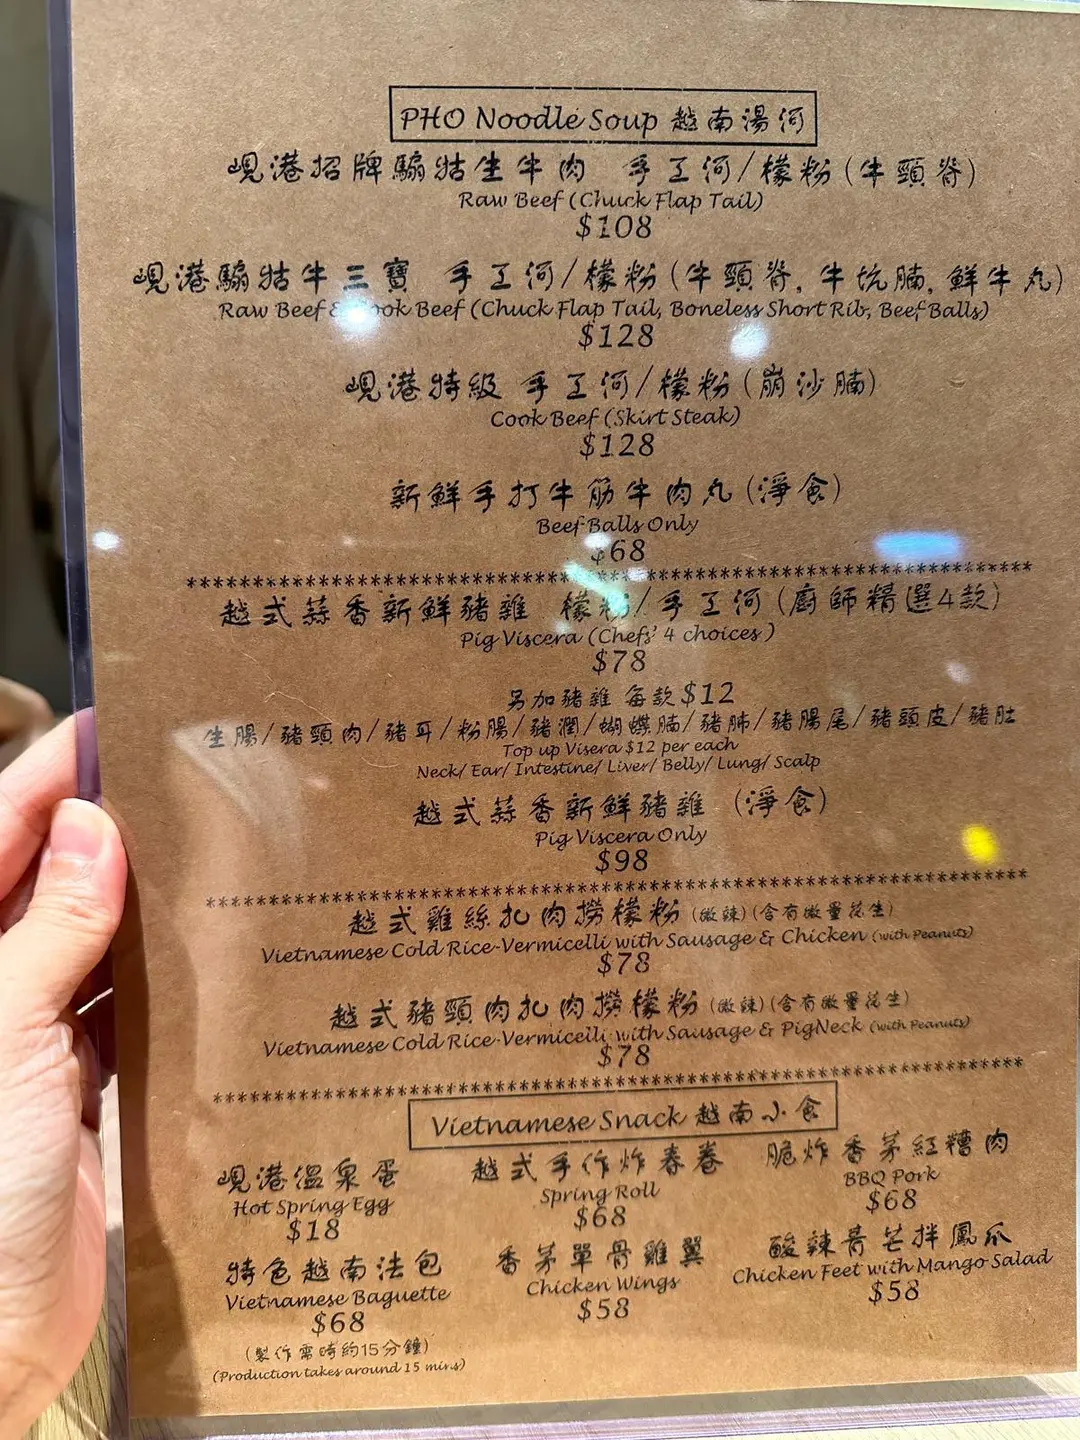 PHO Noodle Soup 越南湯河
峴港招牌騸牯生牛肉 手工河/檬粉(牛頸脊)
Raw Beef (Chuck Flap Tail)
$108
峴港騸牯牛三寶 手工河/檬粉(牛頸脊, 牛坑腩, 鮮牛丸)
Raw Beef & Cook Beef (Chuck Flap Tail, Boneless Short Rib, Beef Balls)
$128
峴港特級 手工河/檬粉(崩沙腩)
Cook Beef (Skirt Steak)
$128
新鮮手打牛筋牛肉丸(淨食)
Beef Balls Only
$68
越式蒜香新鮮豬雜 檬粉/手工河(廚師精選4款)
Pig Viscera (Chefs' 4 choices)
$78
另加豬雜 每款$12
生腸/豬頸肉/豬耳/粉腸/豬潤/蝴蝶腩/豬肺/豬腸尾/豬頭皮/豬肚
Top up Visera $12 per each
Neck/ Ear/ Intestine/ Liver/ Belly/ Lung/ Scalp
越式蒜香新鮮豬雜 (淨食)
Pig Viscera Only
$98
越式雞絲扎肉撈檬粉(微辣)(含有微量花生)
Vietnamese Cold Rice-Vermicelli with Sausage & Chicken (with Peanuts)
$78
越式豬頸肉扎肉撈檬粉(微辣)(含有微量花生)
Vietnamese Cold Rice-Vermicelli with Sausage & PigNeck (with Peanuts)
$78
Vietnamese Snack 越南小食
峴港溫泉蛋
Hot Spring Egg
$18
越式手作炸春卷
Spring Roll
$68
脆炸香茅紅糟肉
BBQ Pork
$68
特色越南法包
Vietnamese Baguette
$68
(製作需時約15分鐘)
(Production takes around 15 mins)
香茅單骨雞翼
Chicken Wings
$58
酸辣青芒拌鳳爪
Chicken Feet with Mango Salad
$58